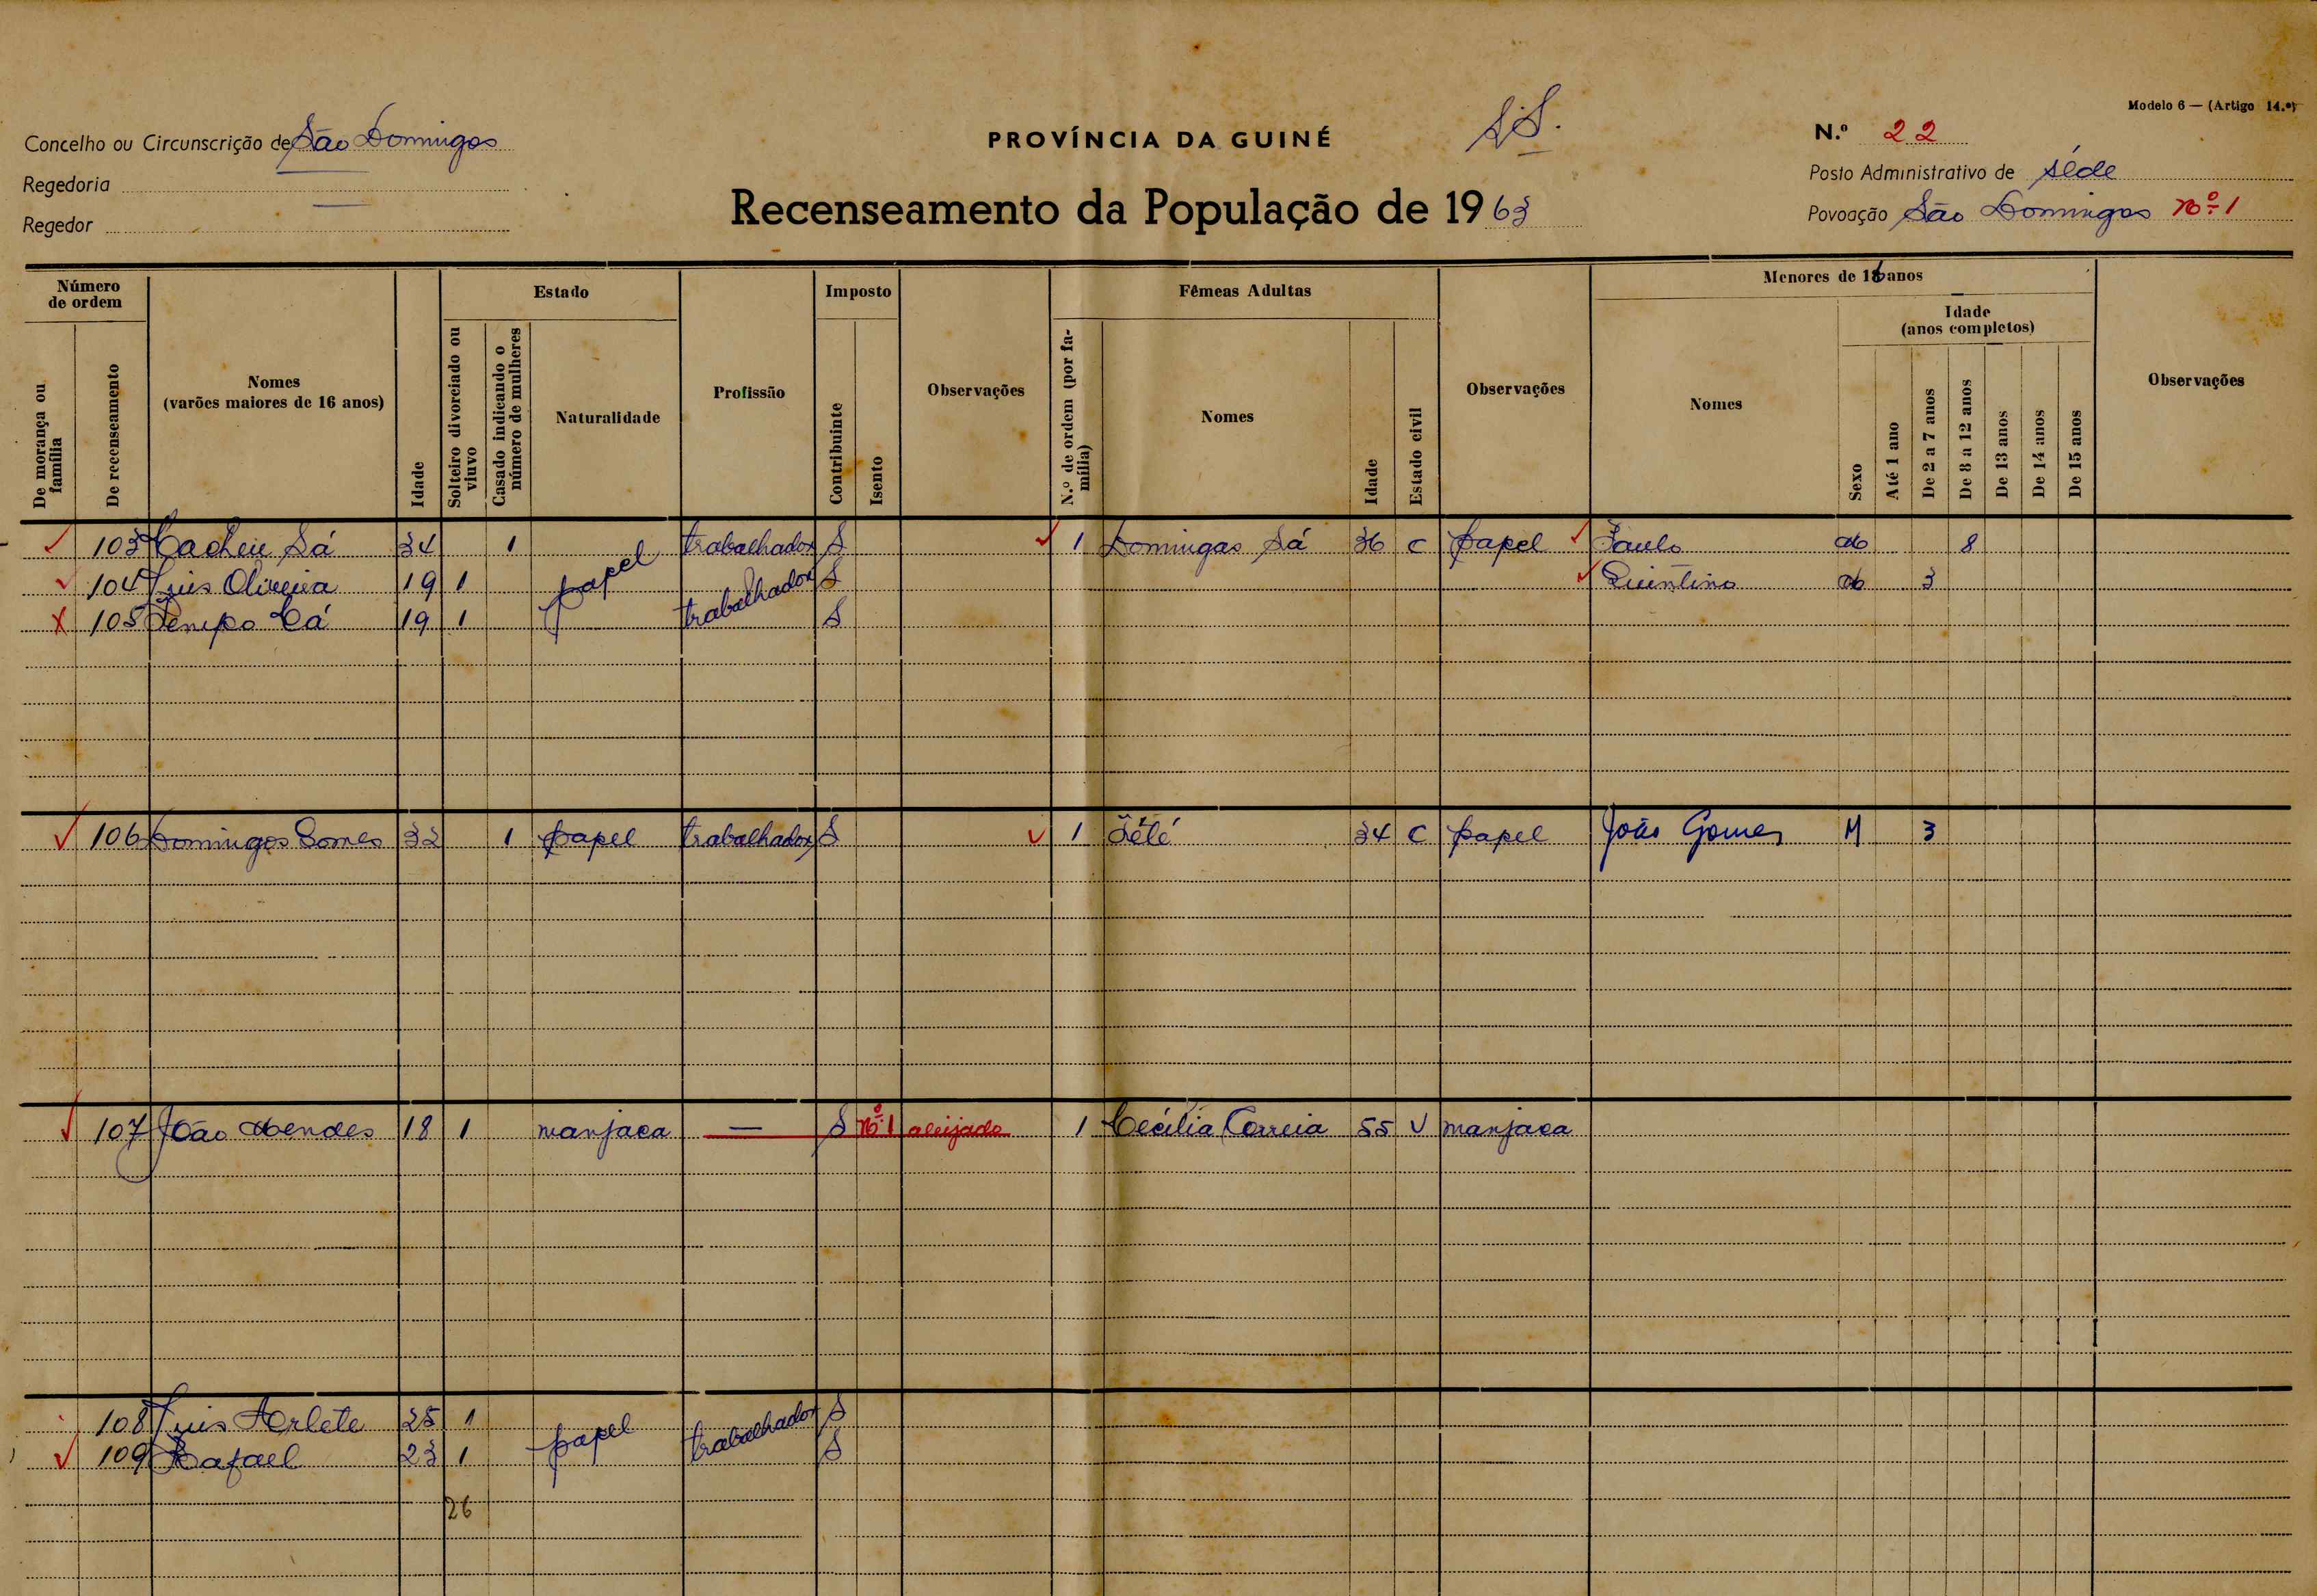 Modelo 6 — (Artigo 14.º)
Concelho ou Circunscrição de São Domingos
PROVÍNCIA DA GUINÉ
N.º 22
Regedoria —
Posto Administrativo de Séde
Regedor —
Recenseamento da População de 1963
Povoação São Domingos Nº 1
Número de ordem
Estado
Imposto
Fêmeas Adultas
Menores de 16 anos
Idade
(anos completos)
De morança ou família
De recenseamento
Nomes
(varões maiores de 16 anos)
Idade
Solteiro divorciado ou viuvo
Casado indicando o número de mulheres
Naturalidade
Profissão
Contribuinte
Isento
Observações
N.º de ordem (por família)
Nomes
Idade
Estado civil
Observações
Nomes
Sexo
Até 1 ano
De 2 a 7 anos
De 8 a 12 anos
De 13 anos
De 14 anos
De 15 anos
Observações
103 Cacheu Sá 34 1 papel trabalhador S 1 Domingas Sá 36 C papel Paulo M 8
104 Luis Oliveira 19 1 trabalhador S Quintino M 3
105 Cá 19 1 S
106 Domingos Gomes 33 1 papel trabalhador S 1 Tété 34 C papel João Gomes M 3
107 João Mendes 18 1 manjaca — S Nº 1 aleijado 1 Cecília Correia 55 V manjaca
108 Luis Arlete 25 1 papel trabalhador S
109 Rafael 23 1 S
26